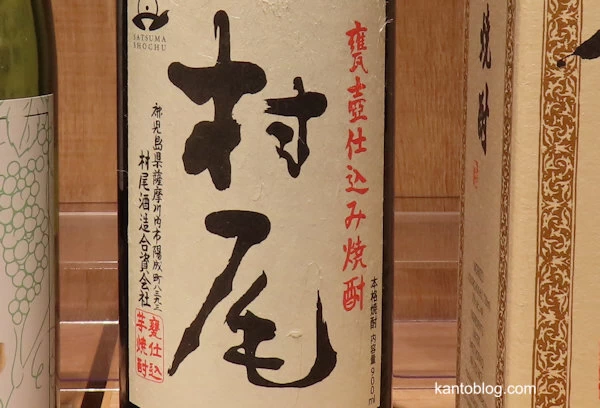 SATSUMA
SHOCHU
村尾
甕壺仕込み焼酎
鹿児島県薩摩川内市陽成町八三九三
村尾酒造合資会社
甕仕込
芋焼酎
本格焼酎 内容量900ml
焼酎
kantoblog.com